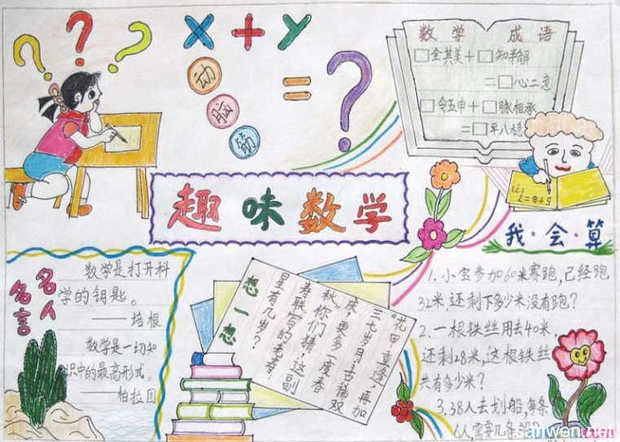 ? ? ?
x + y
= ?
动
脑
筋
数学 成语
□全其美+□知半解
=□心二意
□令五申+□脉相承
=□平八稳
趣味数学
名人名言
数学是打开科
学的钥匙。
——培根
数学是一切知
识中的最高形式。
——柏拉图
想一想
“花甲重逢,再加
三七岁月;古稀双
庆,更多一度春
秋”你们猜,这副
寿联写的老寿
星有几岁?
我·会·算
1.小金参加60米赛跑,已经跑
32米,还剩下多少米没有跑?
2.一根铁丝用去40米,
还剩28米,这根铁丝
共有多少米?
3.38人去划船,每条
sanwen.net